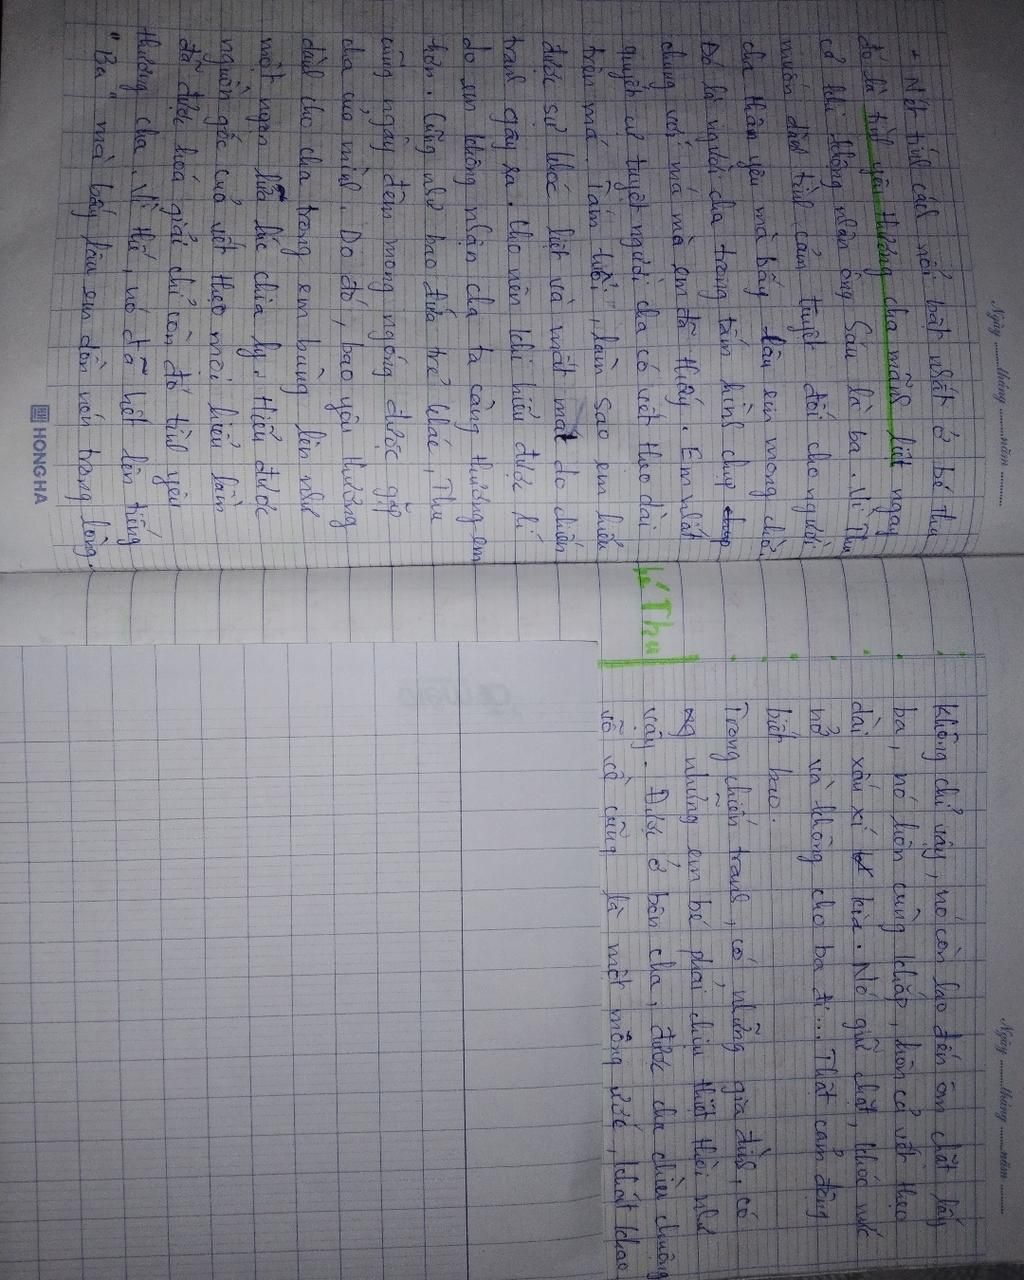 Ngày ......... tháng ......... năm .........
+ Nét tính cách nổi bật nhất ở bé Thu
đó là tình yêu thương cha mãnh liệt ngay
cả khi không nhận ông Sáu là ba. Vì Thu
muốn dành tình cảm tuyệt đối cho người
cha thân yêu mà bấy lâu em mong chờ.
Đó là người cha trong tấm hình chụp
chung với má mà em đã thấy. Em nhất
quyết cự tuyệt người cha có vết thẹo dài
trên má. Tám tuổi, làm sao em hiểu
được sự khốc liệt và mất mát do chiến
tranh gây ra. Cho nên khi hiểu được lí
do em không nhận cha ta càng thương em
hơn. Cũng như bao đứa trẻ khác, Thu
cũng ngày đêm mong ngóng được gặp
cha của mình. Do đó, bao yêu thương
dành cho cha trong em bùng lên như
một ngọn lửa lúc chia ly. Hiểu được
nguồn gốc của vết thẹo mọi hiểu lầm
đã được hóa giải chỉ còn đó tình yêu
thương cha. Vì thế, nó đã hét lên tiếng
"Ba" mà bấy lâu em dồn nén trong lòng.
HONG HA
Ngày ......... tháng ......... năm .........
Không chỉ vậy, nó còn lao đến ôm chặt lấy
ba, nó hôn cùng khắp, hôn cả vết thẹo
dài xấu xí kia. Nó giữ chặt, khóc nức
nở và không cho ba đi... Thật cảm động
biết bao.
Trong chiến tranh, có những gia đình, có
những em bé phải chịu thiệt thòi như
vậy. Được ở bên cha, được cha chiều chuộng
vỗ về cũng là một mong ước, khát khao
bé Thu